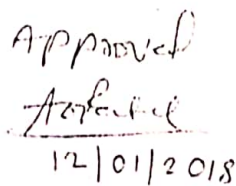 Approved
12/01/2018